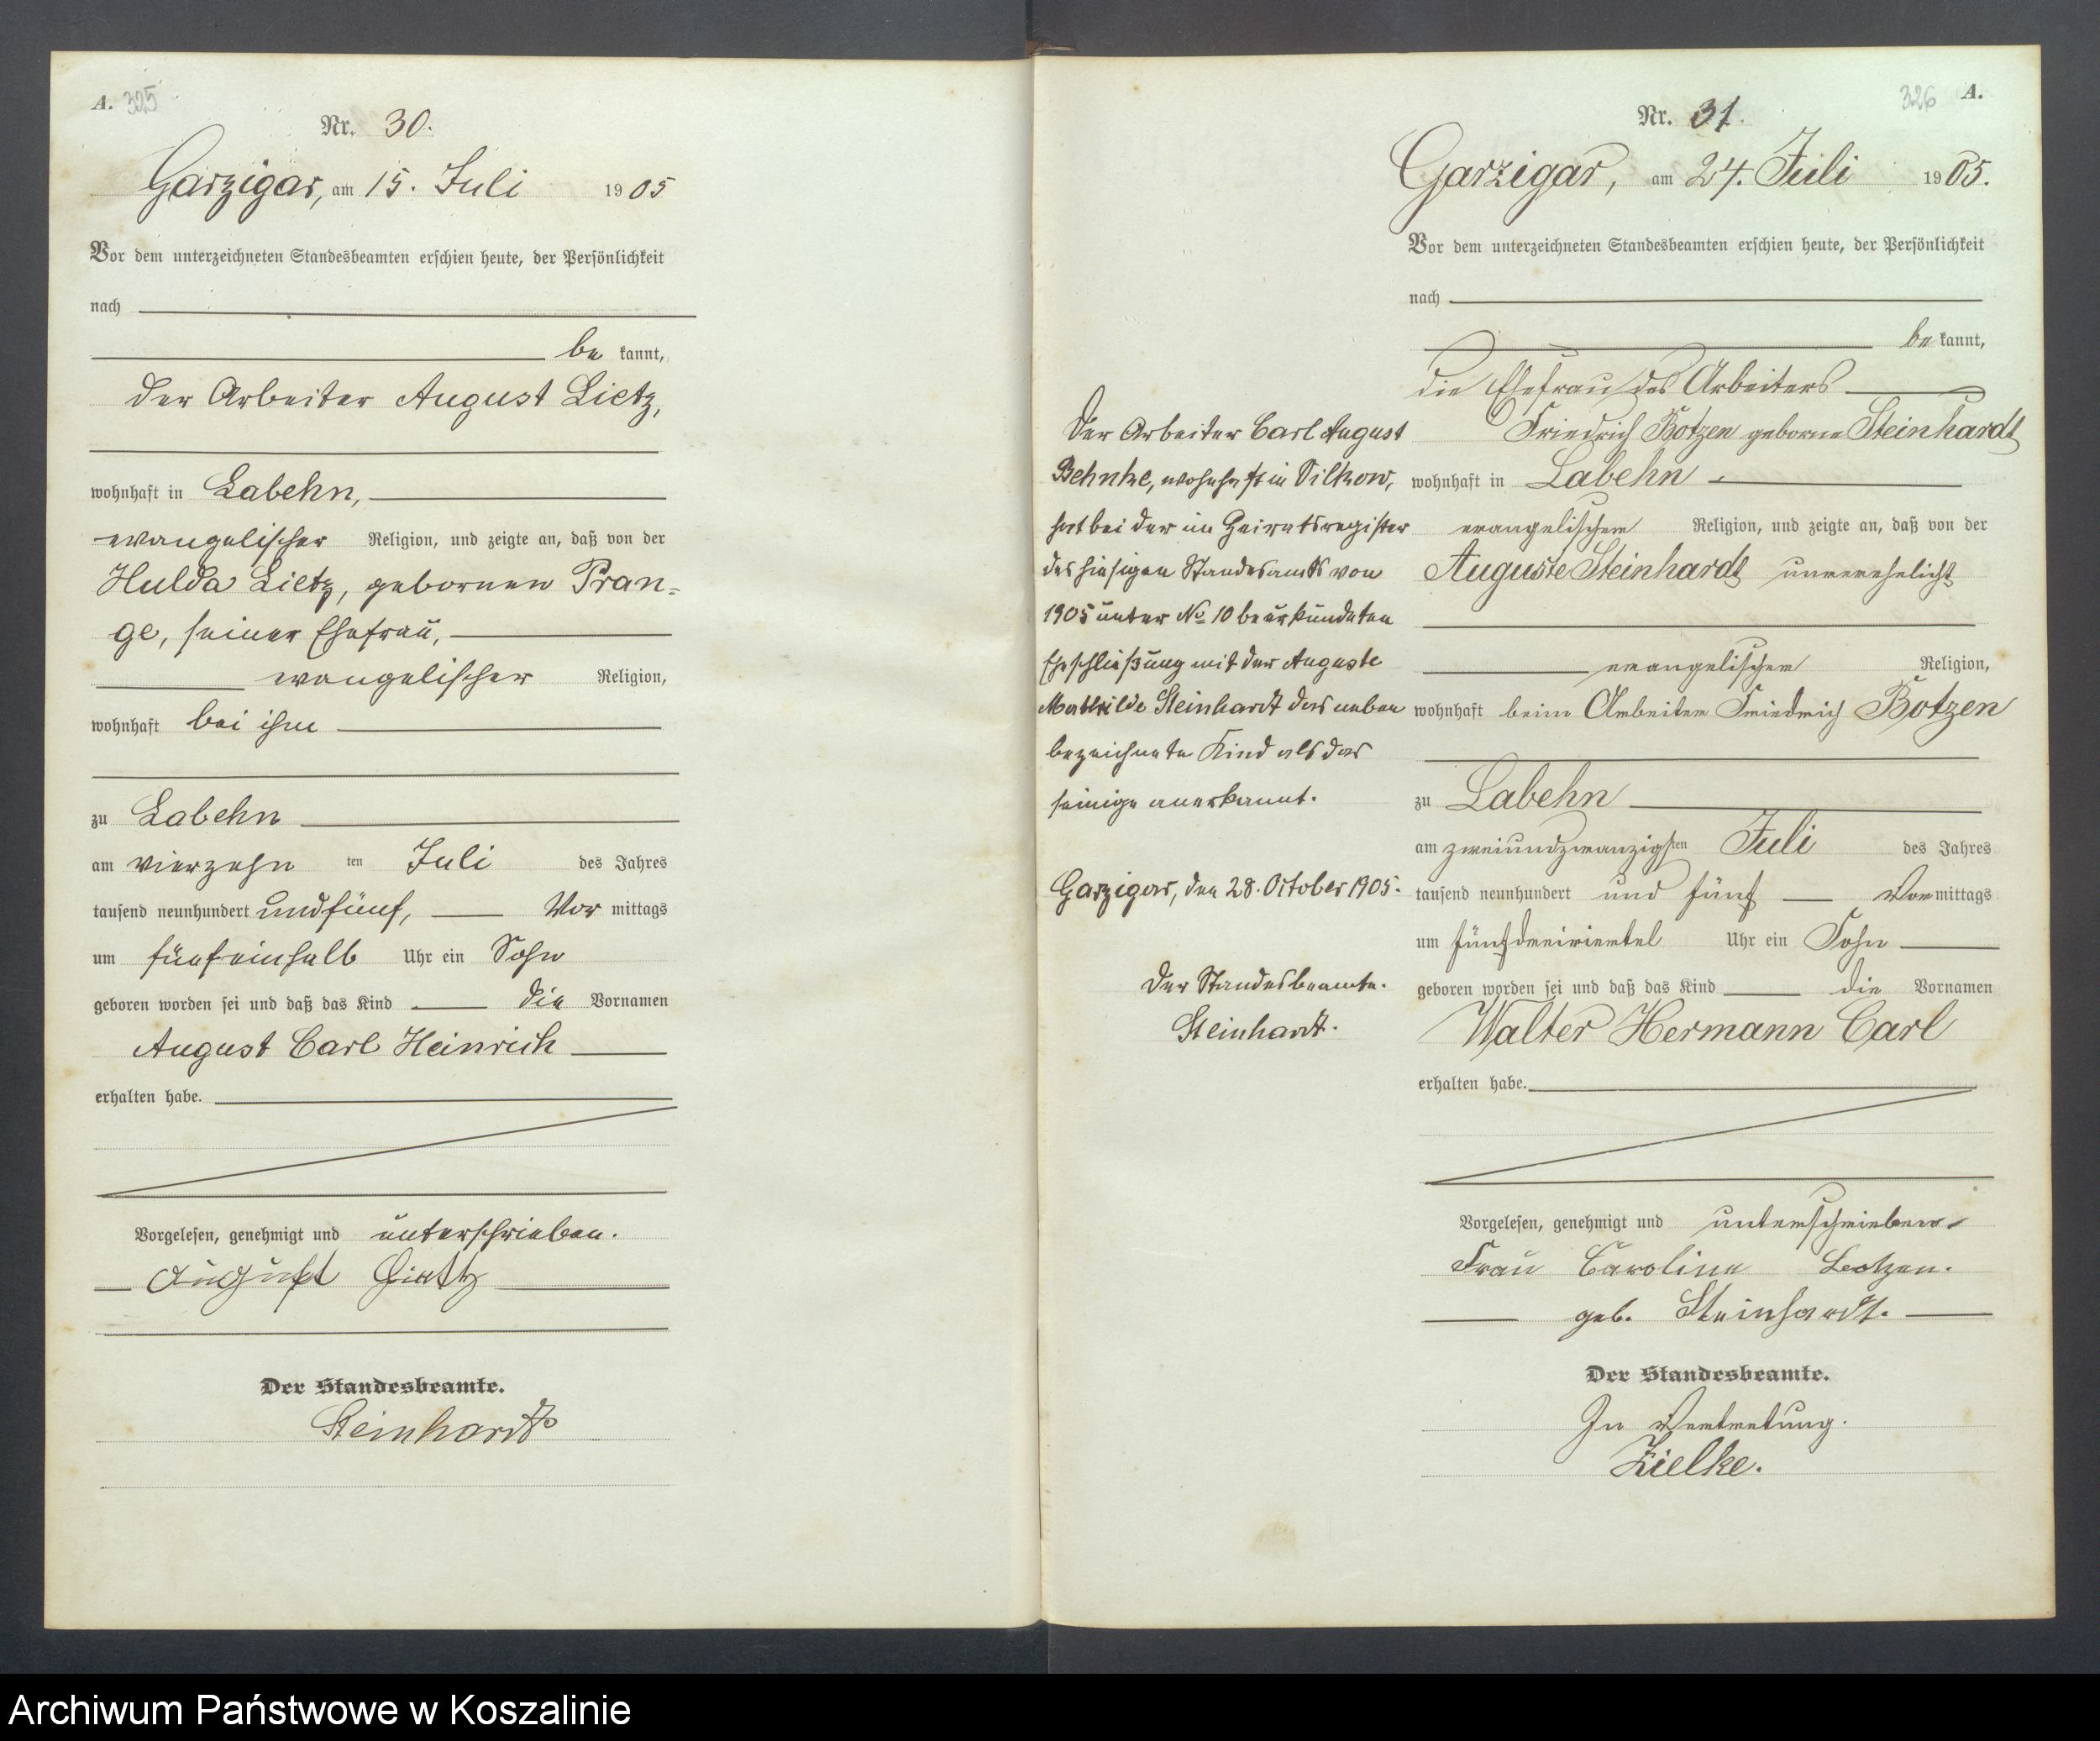 A. 325
Nr. 30.
Garzigar, am 15. Juli 1905
Vor dem unterzeichneten Standesbeamten erschien heute, der Persönlichkeit
nach
be kannt,
der Arbeiter August Lietz,
wohnhaft in Labehn,
evangelischer Religion, und zeigte an, daß von der
Hulda Lietz, geborenen Pran-
ge, seiner Ehefrau,
evangelischer Religion,
wohnhaft bei ihm
zu Labehn
am vierzehn ten Juli des Jahres
tausend neunhundert und fünf, Vor mittags
um fünfeinhalb Uhr ein Sohn
geboren worden sei und daß das Kind die Vornamen
August Carl Heinrich
erhalten habe.
Vorgelesen, genehmigt und unterschrieben.
August Lietz
Der Standesbeamte.
Steinhardt
326 A.
Nr. 31.
Garzigar, am 24. Juli 1905.
Vor dem unterzeichneten Standesbeamten erschien heute, der Persönlichkeit
nach
be kannt,
die Ehefrau des Arbeiters
Friedrich Botzen geborne Steinhardt
wohnhaft in Labehn
evangelischer Religion, und zeigte an, daß von der
Auguste Steinhardt unverehelicht
evangelischer Religion,
wohnhaft beim Arbeiter Friedrich Botzen
zu Labehn
am zweiundzwanzigsten Juli des Jahres
tausend neunhundert und fünf Vormittags
um fünfdreiviertel Uhr ein Sohn
geboren worden sei und daß das Kind die Vornamen
Walter Hermann Carl
erhalten habe.
Vorgelesen, genehmigt und unterschrieben
Frau Caroline Botzen.
geb. Steinhardt.
Der Standesbeamte.
In Vertretung.
Zielke.
Der Arbeiter Carl August
Behnke, wohnhaft in Vilkow,
hat bei der im Heiratsregister
des hiesigen Standesamts von
1905 unter No 10 beurkundeten
Eheschließung mit der Auguste
Mathilde Steinhardt das neben
bezeichnete Kind als das
seinige anerkannt.
Garzigar, den 28. October 1905.
Der Standesbeamte.
Steinhardt.
Archiwum Państwowe w Koszalinie